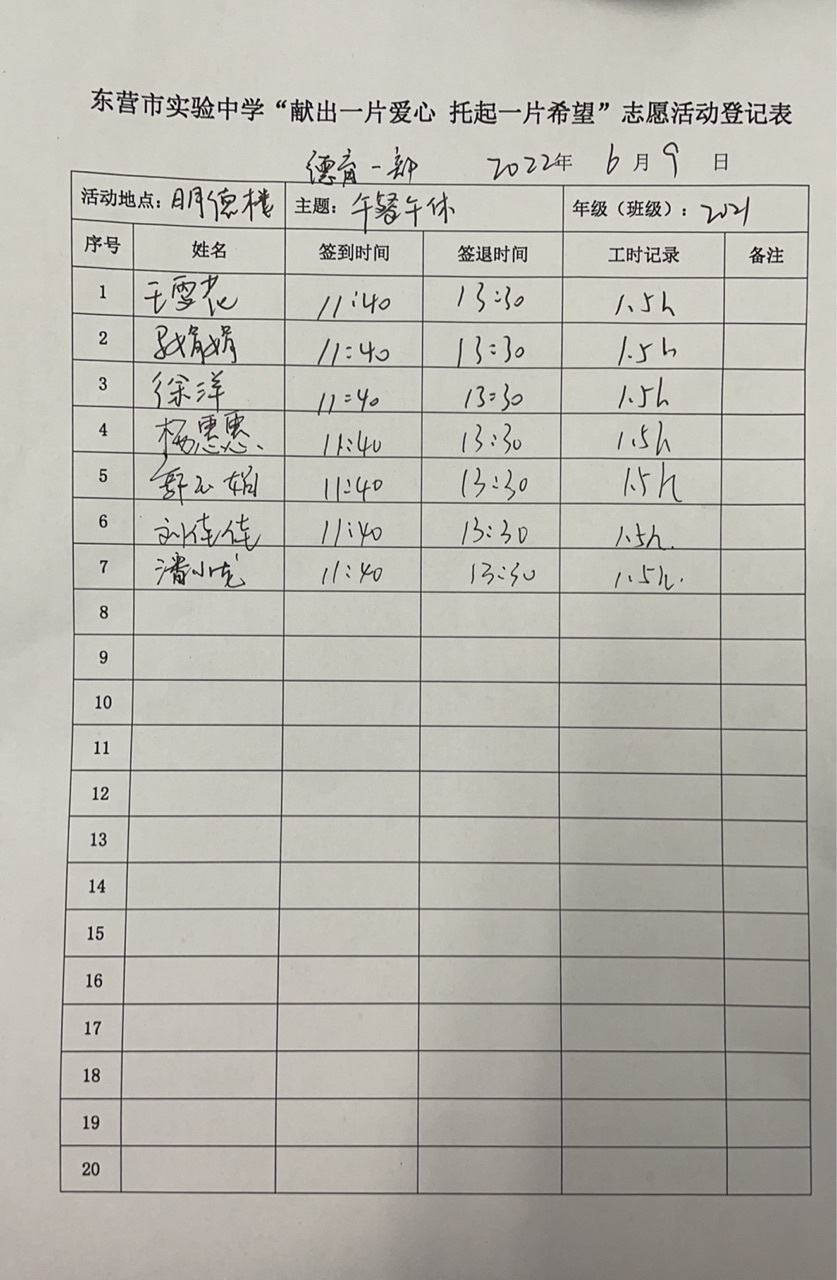 东营市实验中学“献出一片爱心 托起一片希望”志愿活动登记表
德育一部 2022年 6月9日
活动地点：明德楼 主题：午餐午休 年级（班级）：2021
序号 姓名 签到时间 签退时间 工时记录 备注
1 王雪花 11:40 13:30 1.5h
2 娟娟 11:40 13:30 1.5h
3 徐洋 11:40 13:30 1.5h
4 杨惠惠 11:40 13:30 1.5h
5 11:40 13:30 1.5h
6 刘佳佳 11:40 13:30 1.5h.
7 潘小龙 11:40 13:30 1.5h.
8
9
10
11
12
13
14
15
16
17
18
19
20